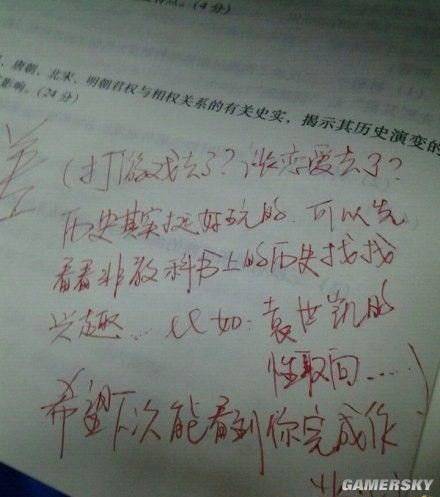 （4分）
、唐朝、北宋、明朝君权与相权关系的有关史实，揭示其历史演变的
影响。（24分）
差
（打游戏去了？谈恋爱去了？
历史其实挺好玩的，可以先
看看非教科书上的历史找找
兴趣...比如：袁世凯的
性取向......）
希望下次能看到你完成作
业
GAMERSKY